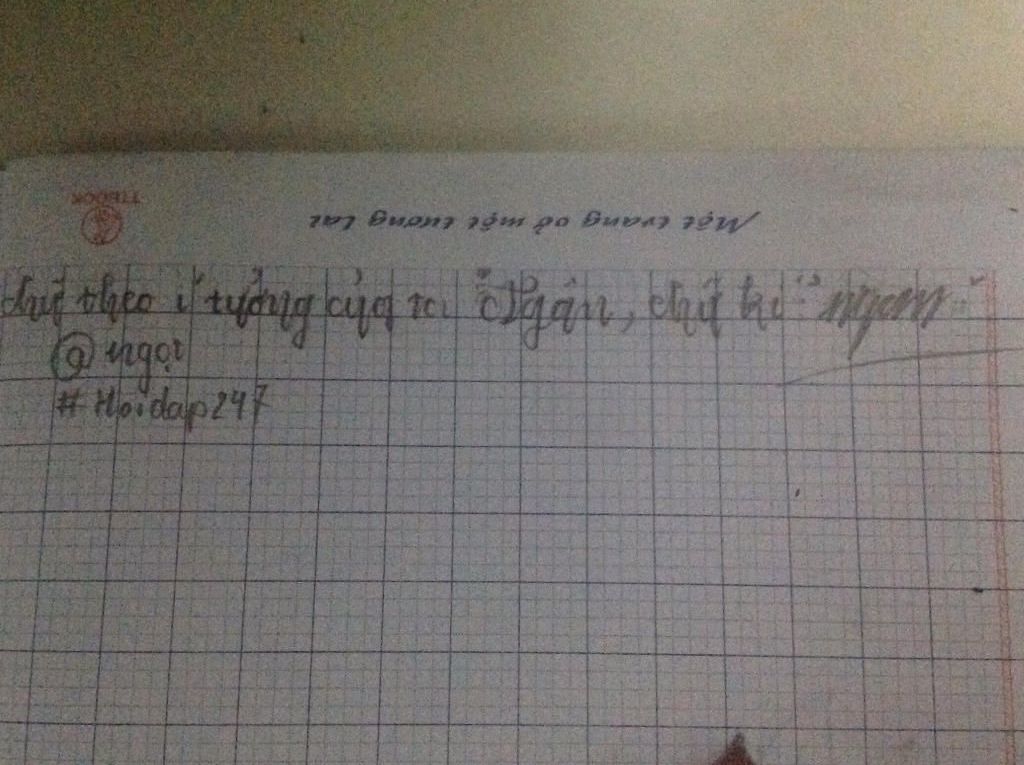 Một trang vở một tương lai
TIBOOK
chữ theo ý tưởng của ta "Ngân, chữ kí "ngam"
@ ngọi
# Hoidap247